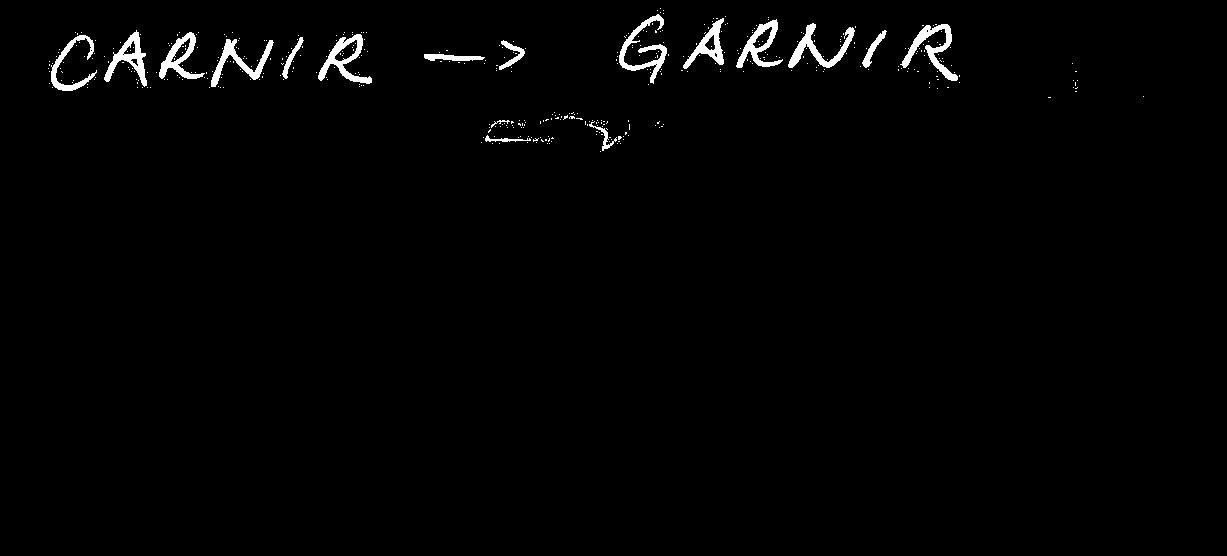 CARNIR -> GARNIR